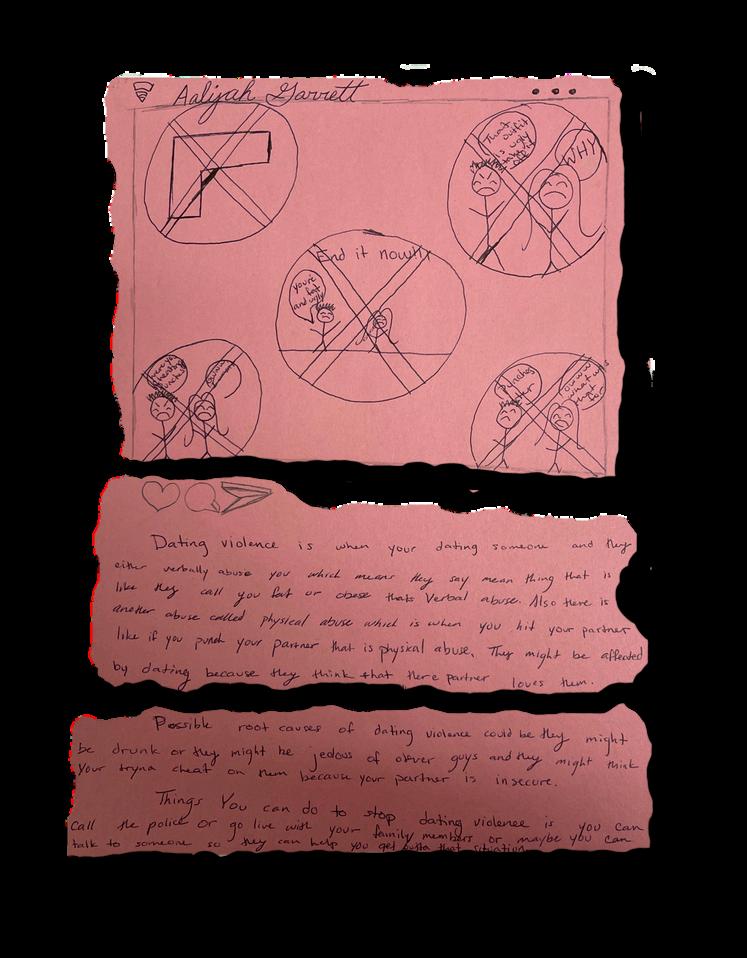 Aaliyah Garrett
That outfit is ugly take it off
WHY
End it now!!!
you're fat and ugly
Punches her
owww what was that for
Dating violence is when your dating someone and they
either verbally abuse you which means they say mean thing that is
like they call you fat or obese thats Verbal abuse. Also there is
another abuse called physical abuse which is when you hit your partner
like if you punch your partner that is physical abuse. They might be affected
by dating because they think that there partner loves them.
Possible root causes of dating violence could be they might
be drunk or they might be jealous of other guys and they might think
your tryna cheat on them because your partner is insecure.
Things You can do to stop dating violence is you can
call the police or go live with your family members or maybe you can
talk to someone so they can help you get outta that situation